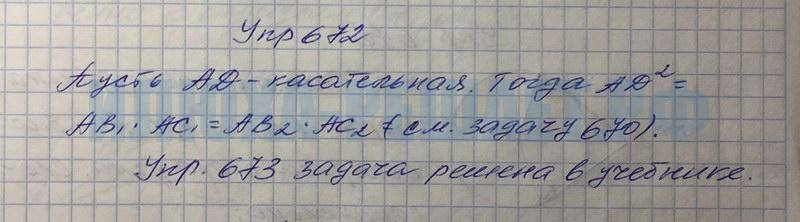 Упр 672
Пусть AD - касательная. Тогда AD² =
AB₁ · AC₁ = AB₂ · AC₂ (см. задачу 670).
Упр. 673 задача решена в учебнике.